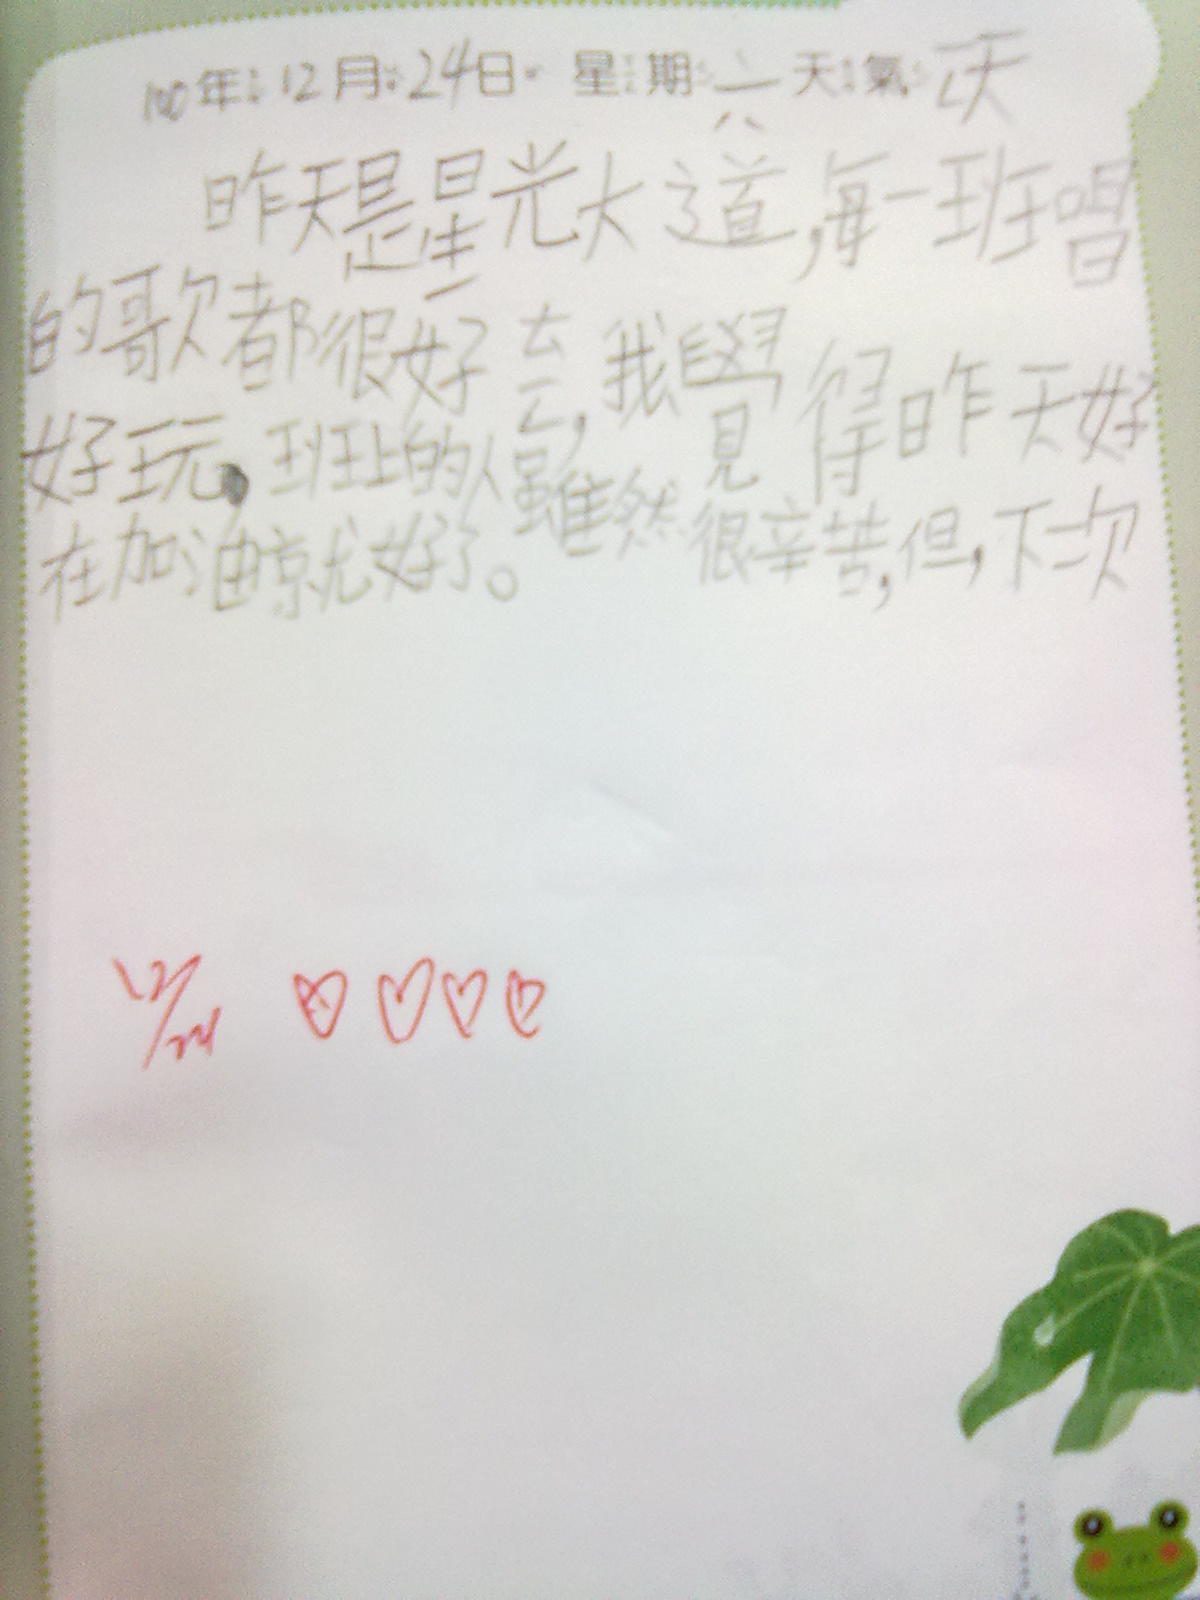 100年12月24日 星期六天氣
昨天是星光大道,每一班唱
的歌都很好去,我覺得昨天好
好玩。班上的人雖然很辛苦,但,下次
在加油就好了。
12/24